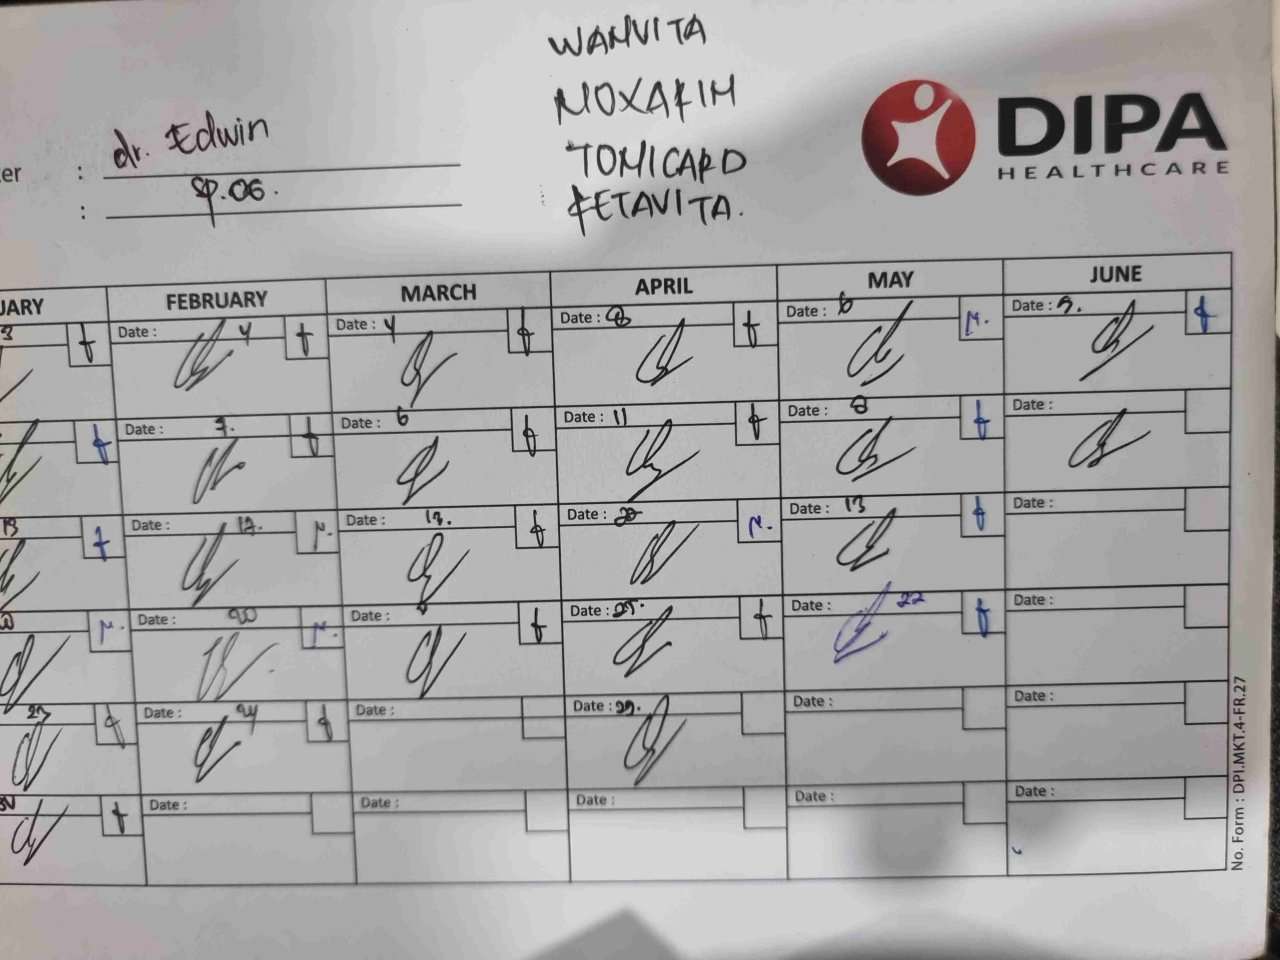 WANVITA
MOXAFIM
TOMICARD
FETAVITA.
DIPA
HEALTHCARE
ter : dr. Edwin
: Sp.OG.
UARY FEBRUARY MARCH APRIL MAY JUNE
3 Date : 4 Date : 4 Date : 8 Date : 6 Date : 3.
Date : 7. Date : 6 Date : 11 Date : 8 Date :
13 Date : 12. Date : 13. Date : 20 Date : 13 Date :
Date : 20 Date : Date : 25. Date : 22 Date :
23 Date : 24 Date : Date : 29. Date : Date :
Date : Date : Date : Date : Date :
No. Form : DPI.MKT.4-FR.27